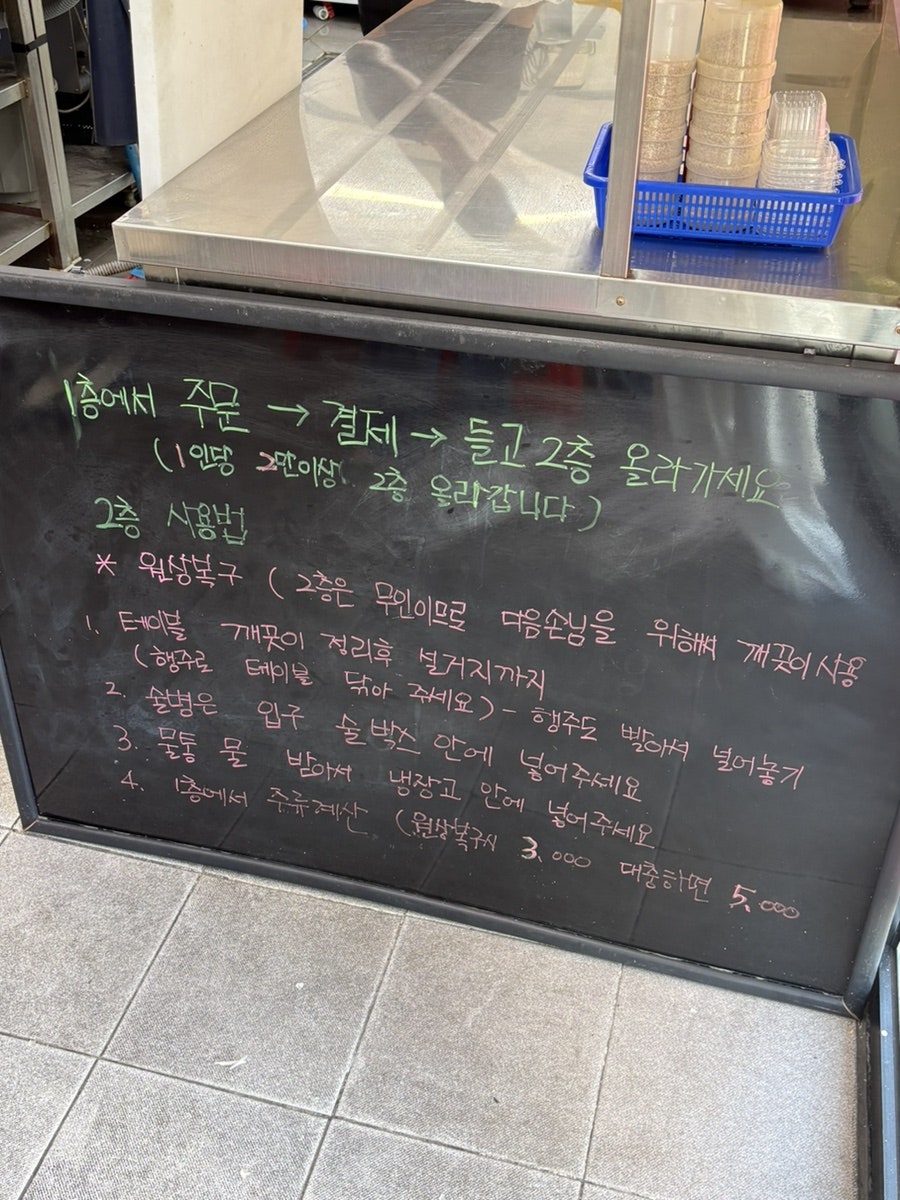 1층에서 주문 → 결제 → 들고 2층 올라가세요
(1인당 2만이상 2층 올라갑니다)
2층 사용법
* 원상복구 (2층은 무인이므로 다음손님을 위해써 깨끗이 사용
1. 테이블 깨끗이 정리후 설거지까지
(행주로 테이블 닦아 주세요) - 행주도 빨아서 널어놓기
2. 술병은 입구 술박스 안에 넣어주세요
3. 물통 물 받아서 냉장고 안에 넣어주세요
4. 1층에서 주류계산 (원상복구시 3.000 대충하면 5.000